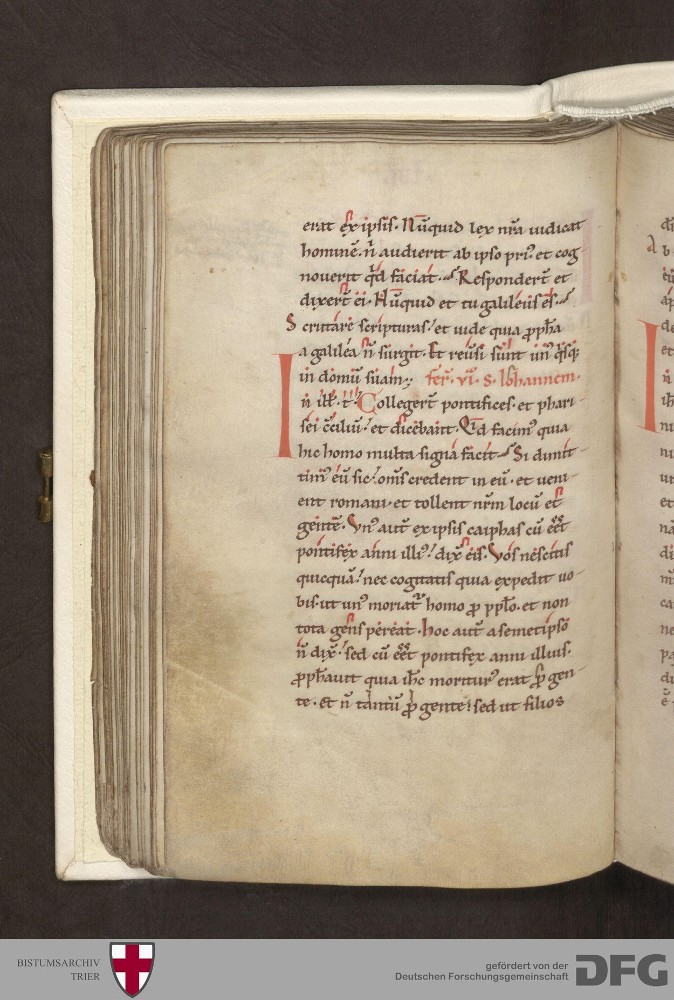 erat ex ipsis. Nūquid lex nr̄a iudicat
hominē. n̄ audierit ab ipso priꝰ. et cog
nouerit qd̄ faciat. Respondert̄ et
dixert̄ ei. Nūquid et tu galileus es.
Scrutare scripturas. et uide quia ꝓpħa
a galilea n̄ surgit. Et reūsi sunt unꝰ qͥsqꝫ
in domū suam. fer̄. vi. s. Ioħannem.
In ill̄. t̄. Collegert̄ pontifices. et phari
sei c̄ciliū. et dicebant. Qid facimꝰ quia
hic homo multa signa facit. Si dimit
timꝰ eū sic. om̄s credent in eū. et ueni
ent romani. et tollent nr̄m locū et
gentē. Vnꝰ aut̄ ex ipsis caiphas cū eēt
pontifex anni illiꝰ. dix̄ eis. Vos nescitis
quicquā. nec cogitatis quia expedit uo
bis. ut unꝰ moriat᷑ homo ꝓ ppl̄o. et non
tota gens pereat. Hoc aut̄ a semetipso
n̄ dix̄. sed cū eēt pontifex anni illius.
ꝓpħauit quia iħc moriturꝰ erat ꝓ gen
te. Et n̄ tantū ꝓ gente. sed ut filios
BISTUMSARCHIV
TRIER
gefördert von der
Deutschen Forschungsgemeinschaft
DFG